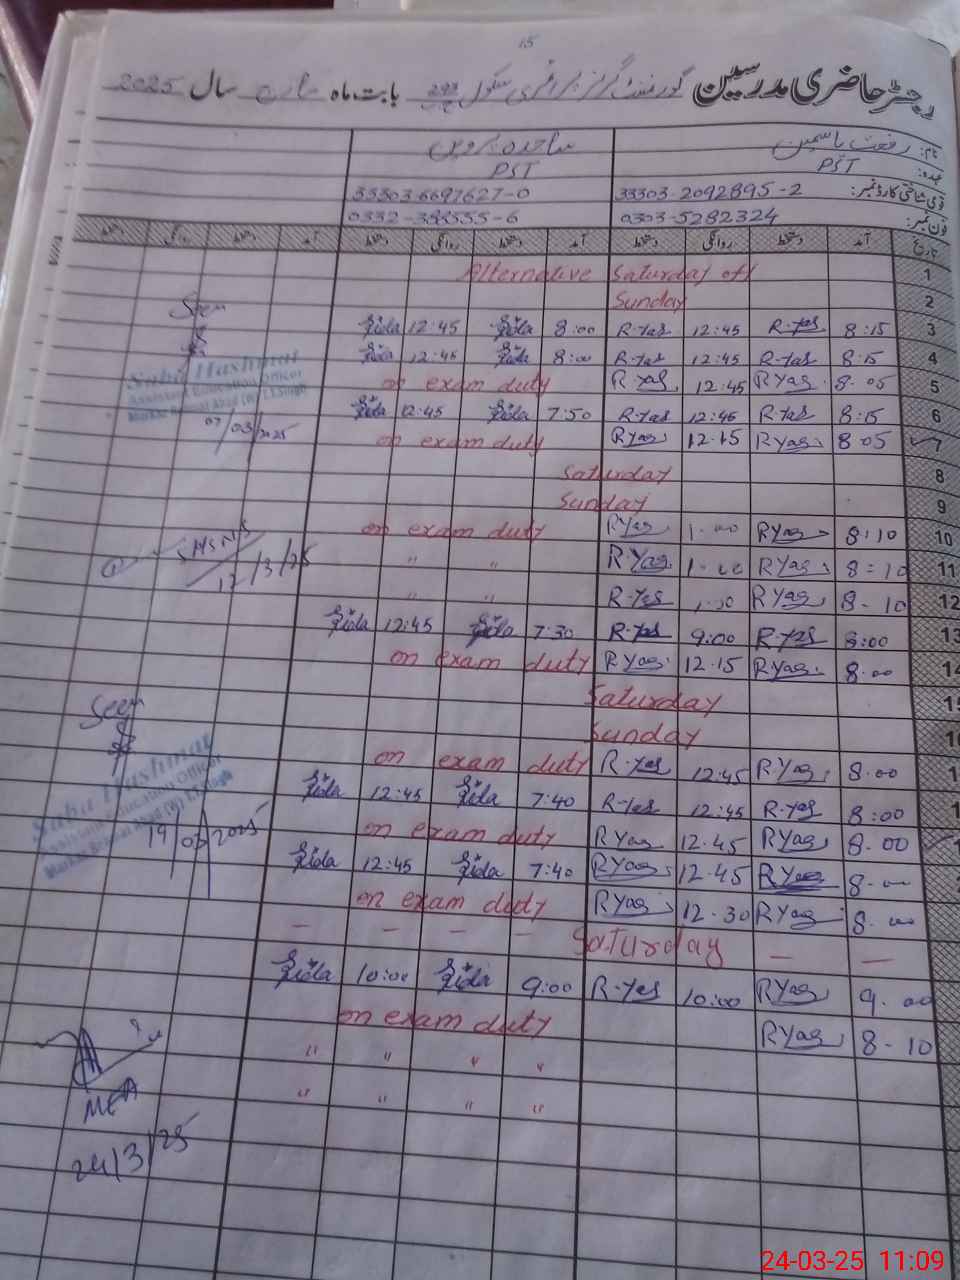 15
رجسٹر حاضری مدرسین گورنمنٹ گرلز پرائمری سکول بابت ماہ مارچ سال 2025
نام: رفعت یاسمین ساجدہ پروین
عہدہ: PST PST
قومی شناختی کارڈ نمبر: 33303-2092895-2 33303-6697627-0
فون نمبر: 0303-5282324 0332-388555-6
تاریخ آمد دستخط روانگی دستخط آمد دستخط روانگی دستخط آمد دستخط روانگی دستخط
1 Alternative Saturday off
2 Sunday
3 8:15 R-Yas 12:45 R-Yas 8:00 Zida 12:45 Zida
4 8:15 R-Yas 12:45 R-Yas 8:00 Zida 12:45 Zida
5 8.05 RYas 12:45 R-Yas on exam duty
6 8:15 R-Yas 12:45 R-Yas 7:50 Zida 12:45 Zida
7 8.05 RYas 12.15 RYas on exam duty
8 Saturday
9 Sunday
10 8:10 RYas 1.00 RYas on exam duty
11 8=10 RYas 1.00 R.Yas " "
12 8-10 RYas R-Yas " "
13 8:00 R-Yas 9:00 R-Yas 7:30 Zida 12:45 Zida
14 8.00 RYas 12.15 RYas on exam duty
Saturday
Sunday
8.00 RYas 12:45 R-Yas on exam duty
8:00 R-Yas 12:45 R-Yas 7:40 Zida 12:45 Zida
8.00 RYas 12.45 RYas on exam duty
8.00 RYas 12.45 RYas 7:40 Zida 12:45 Zida
8.00 RYas 12.30 RYas on exam duty
— — Saturday — — — —
9.00 RYas 10:00 R-Yas 9:00 Zida 10:00 Zida
8-10 RYas on exam duty
" " " "
" " " "
Seen
Saba Hashmat
Assistant Education Officer
07/03/2025
12/3/25
Seen
Saba Hashmat
Assistant Education Officer
19/03/2025
MEA
24/3/25
24-03-25 11:09